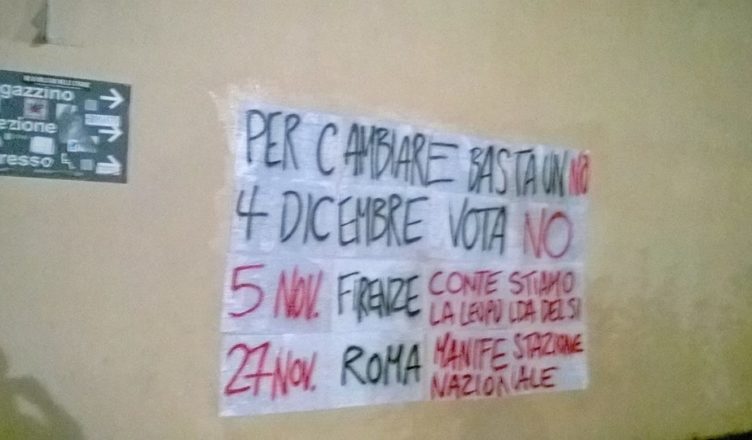 gazzino
ezione
resso
PER CAMBIARE BASTA UN NO
4 DICEMBRE VOTA NO
5 NOV. FIRENZE CONTESTIAMO
LA LEOPOLDA DEL SI
27 NOV. ROMA MANIFESTAZIONE
NAZIONALE